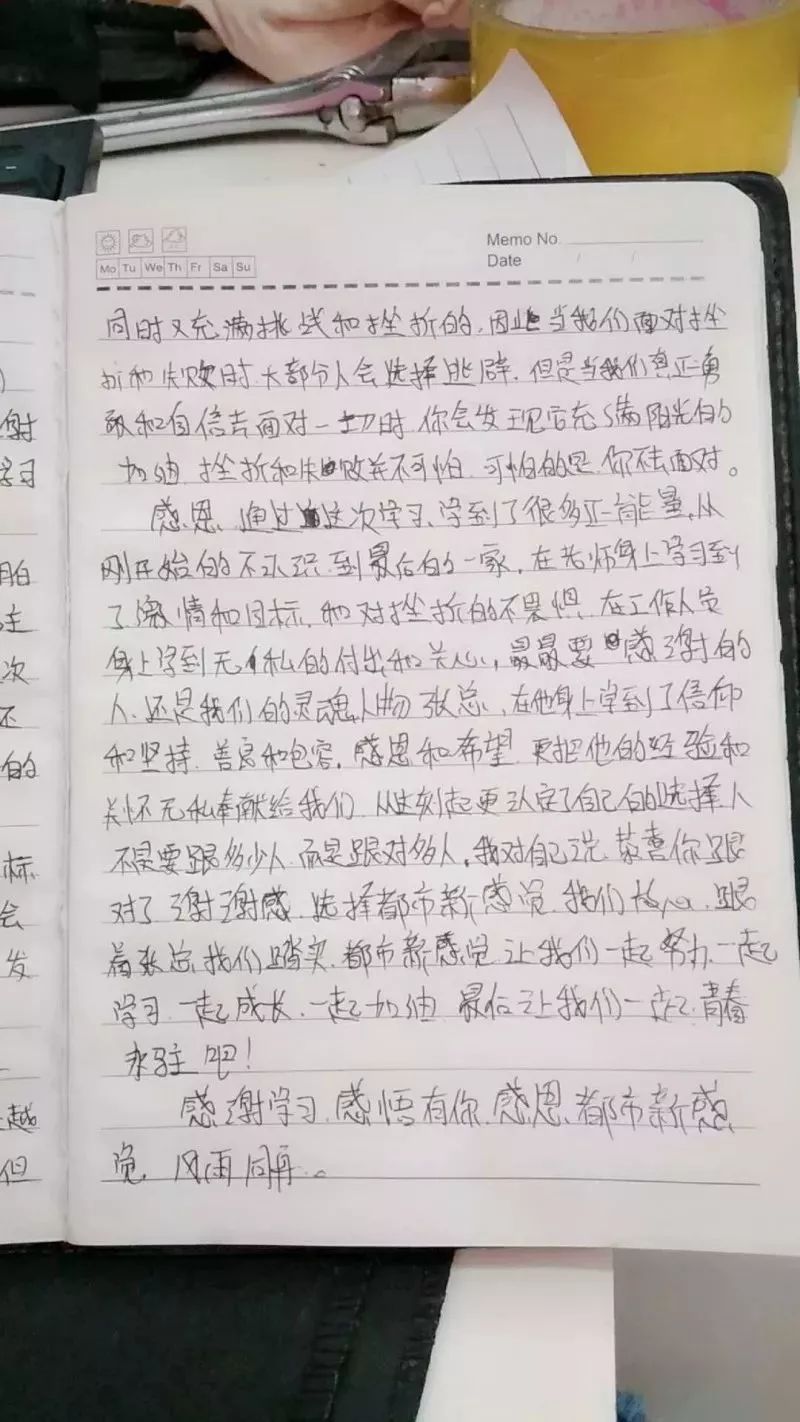 Memo No.
Date / /
Mo Tu We Th Fr Sa Su
同时又充满挑战和挫折的,因此当我们面对挫
折和失败时,大部分人会选择逃辟,但是当我们真正勇
敢和自信去面对一切时,你会发现它充满阳光的
加油,挫折和失败并不可怕,可怕的是,你不去面对。
感恩,通过这次学习,学到了很多正能量,从
刚开始的不认识到最后的一家,在老师身上学习到
了激情和目标,和对挫折的不畏惧,在工作人员
身上学到无私的付出和关心,最最要感谢的
人,还是我们的灵魂人物张总,在他身上学到了信仰
和坚持,善良和包容,感恩和希望,更把他的经验和
关怀无私奉献给我们,从此刻起更认定了自己的选择,人
不是要跟多少人,而是跟对多人,我对自己说,恭喜你跟
对了,谢谢感,选择都市新感觉,我们放心,跟
着张总,我们踏实,都市新感觉,让我们一起努力,一起
学习,一起成长,一起加油,最后让我们一起,青春
永驻吧!
感谢学习,感悟有你,感恩,都市新感
觉,风雨同再。
谢
习
胎
主
次
还
的
标
会
发
越
但